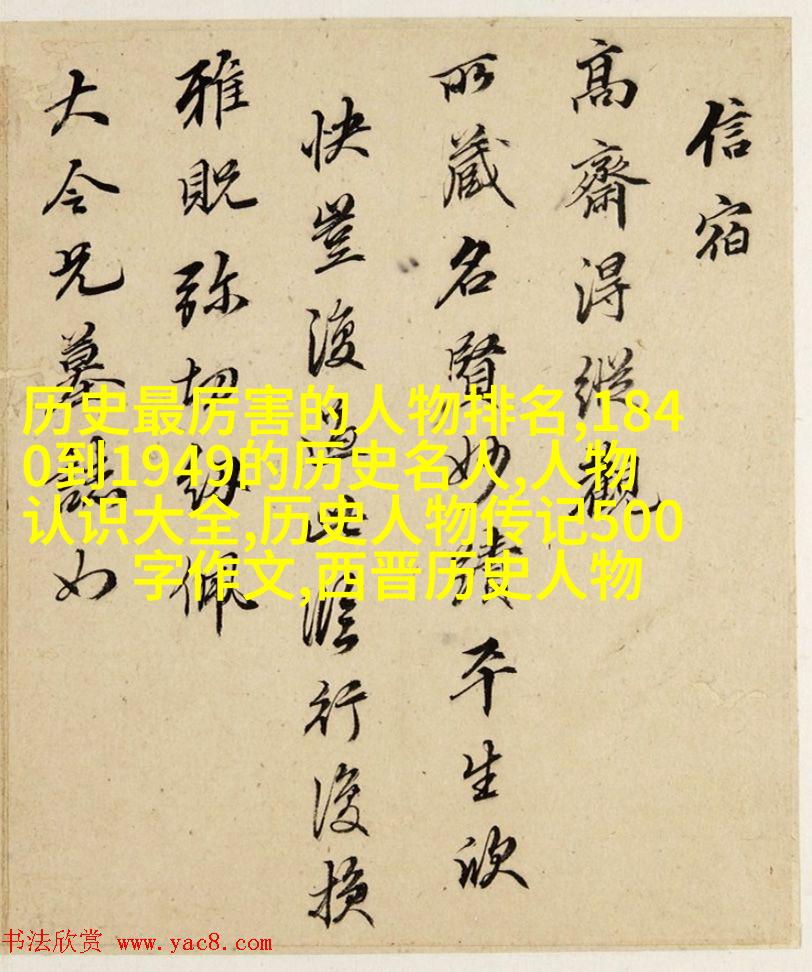 信宿
高齋得縱觀
所藏名賢妙蹟平生欣
快豈復過此行復損
雅貺弥切紉佩
大令兄墓誌如
历史最厉害的人物排名,184
0到1949的历史名人,人物
认识大全,历史人物传记500
字作文,西晋历史人物
书法欣赏 www.yac8.com